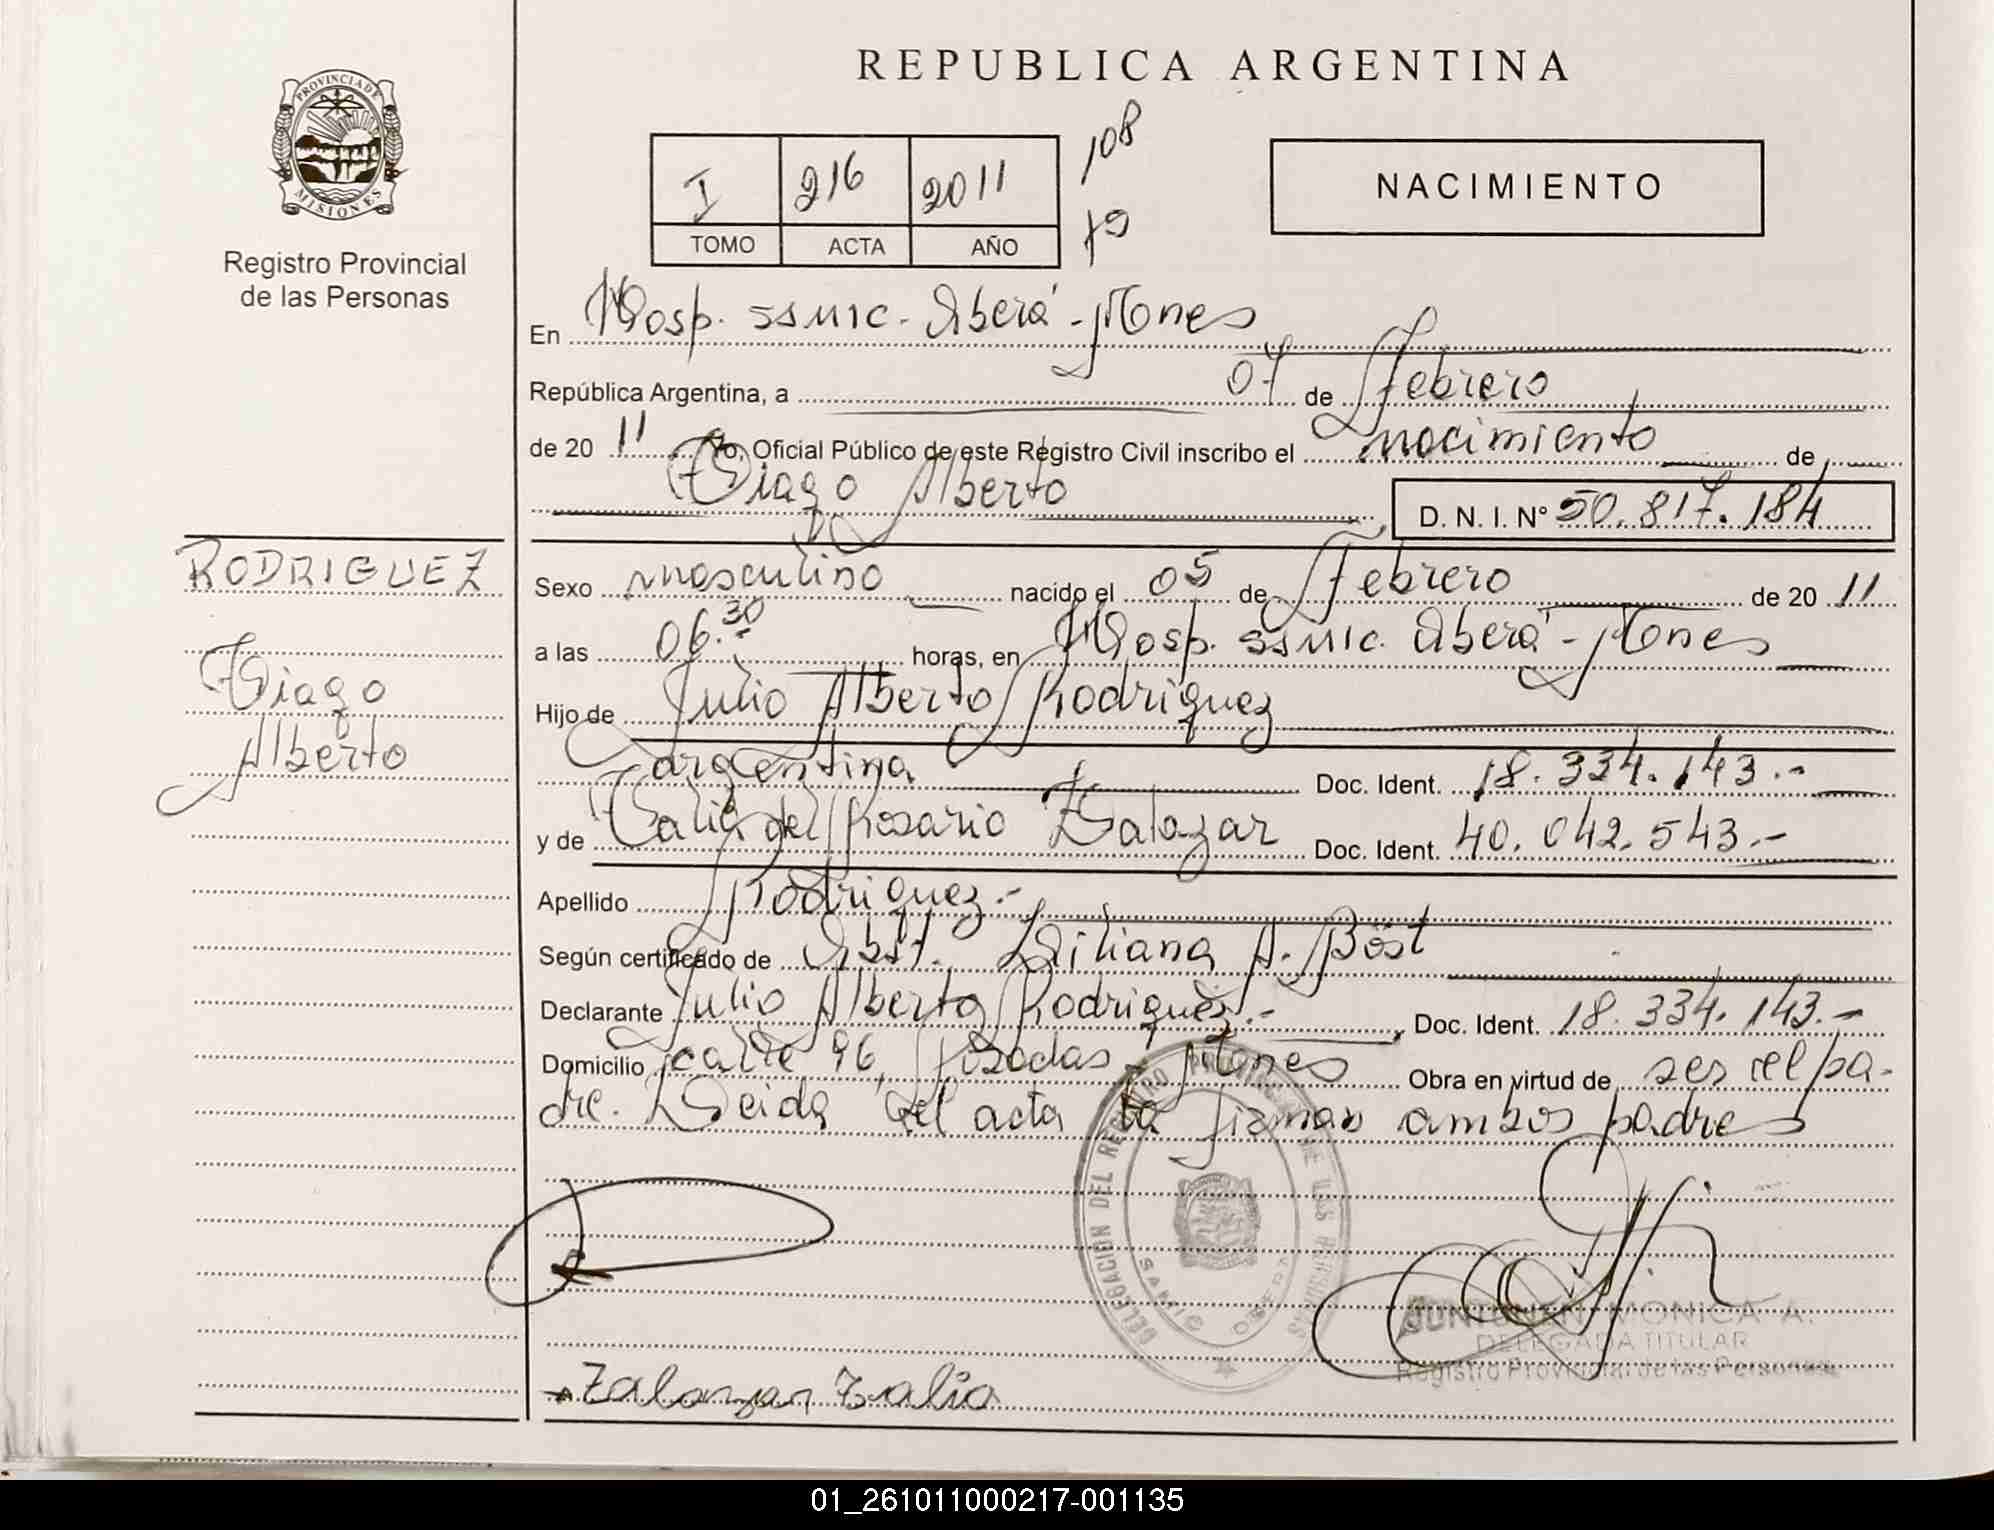 REPUBLICA ARGENTINA
PROVINCIA DE
MISIONES
Registro Provincial
de las Personas
I 216 2011
TOMO ACTA AÑO
108
79
NACIMIENTO
En Hosp. SSMIC. Oberá - Mones
República Argentina, a 07 de Febrero
de 20 11 Yo, Oficial Público de este Registro Civil inscribo el nacimiento de
Tiago Alberto D. N. I. N° 50.817.184
RODRIGUEZ
Tiago
Alberto
Sexo masculino nacido el 05 de Febrero de 20 11
a las 06.30 horas, en Hosp. SSMIC. Oberá - Mones
Hijo de Julio Alberto Rodriguez
argentina Doc. Ident. 18.334.143.-
y de Talia del Rosario Zalazar Doc. Ident. 40.042.543.-
Apellido Rodriguez.-
Según certificado de Obst. Liliana A. Böst
Declarante Julio Alberto Rodriguez.- Doc. Ident. 18.334.143.-
Domicilio calle 96, Posadas - Mones Obra en virtud de ser el pa-
dre. Leida el acta la firman ambos padres
DELEGACION DEL REGISTRO PROVINCIAL DE LAS PERSONAS
OBERA
Zalazar Talia
JUNTUNEN MONICA A.
DELEGADA TITULAR
Registro Provincial de las Personas
01_261011000217-001135